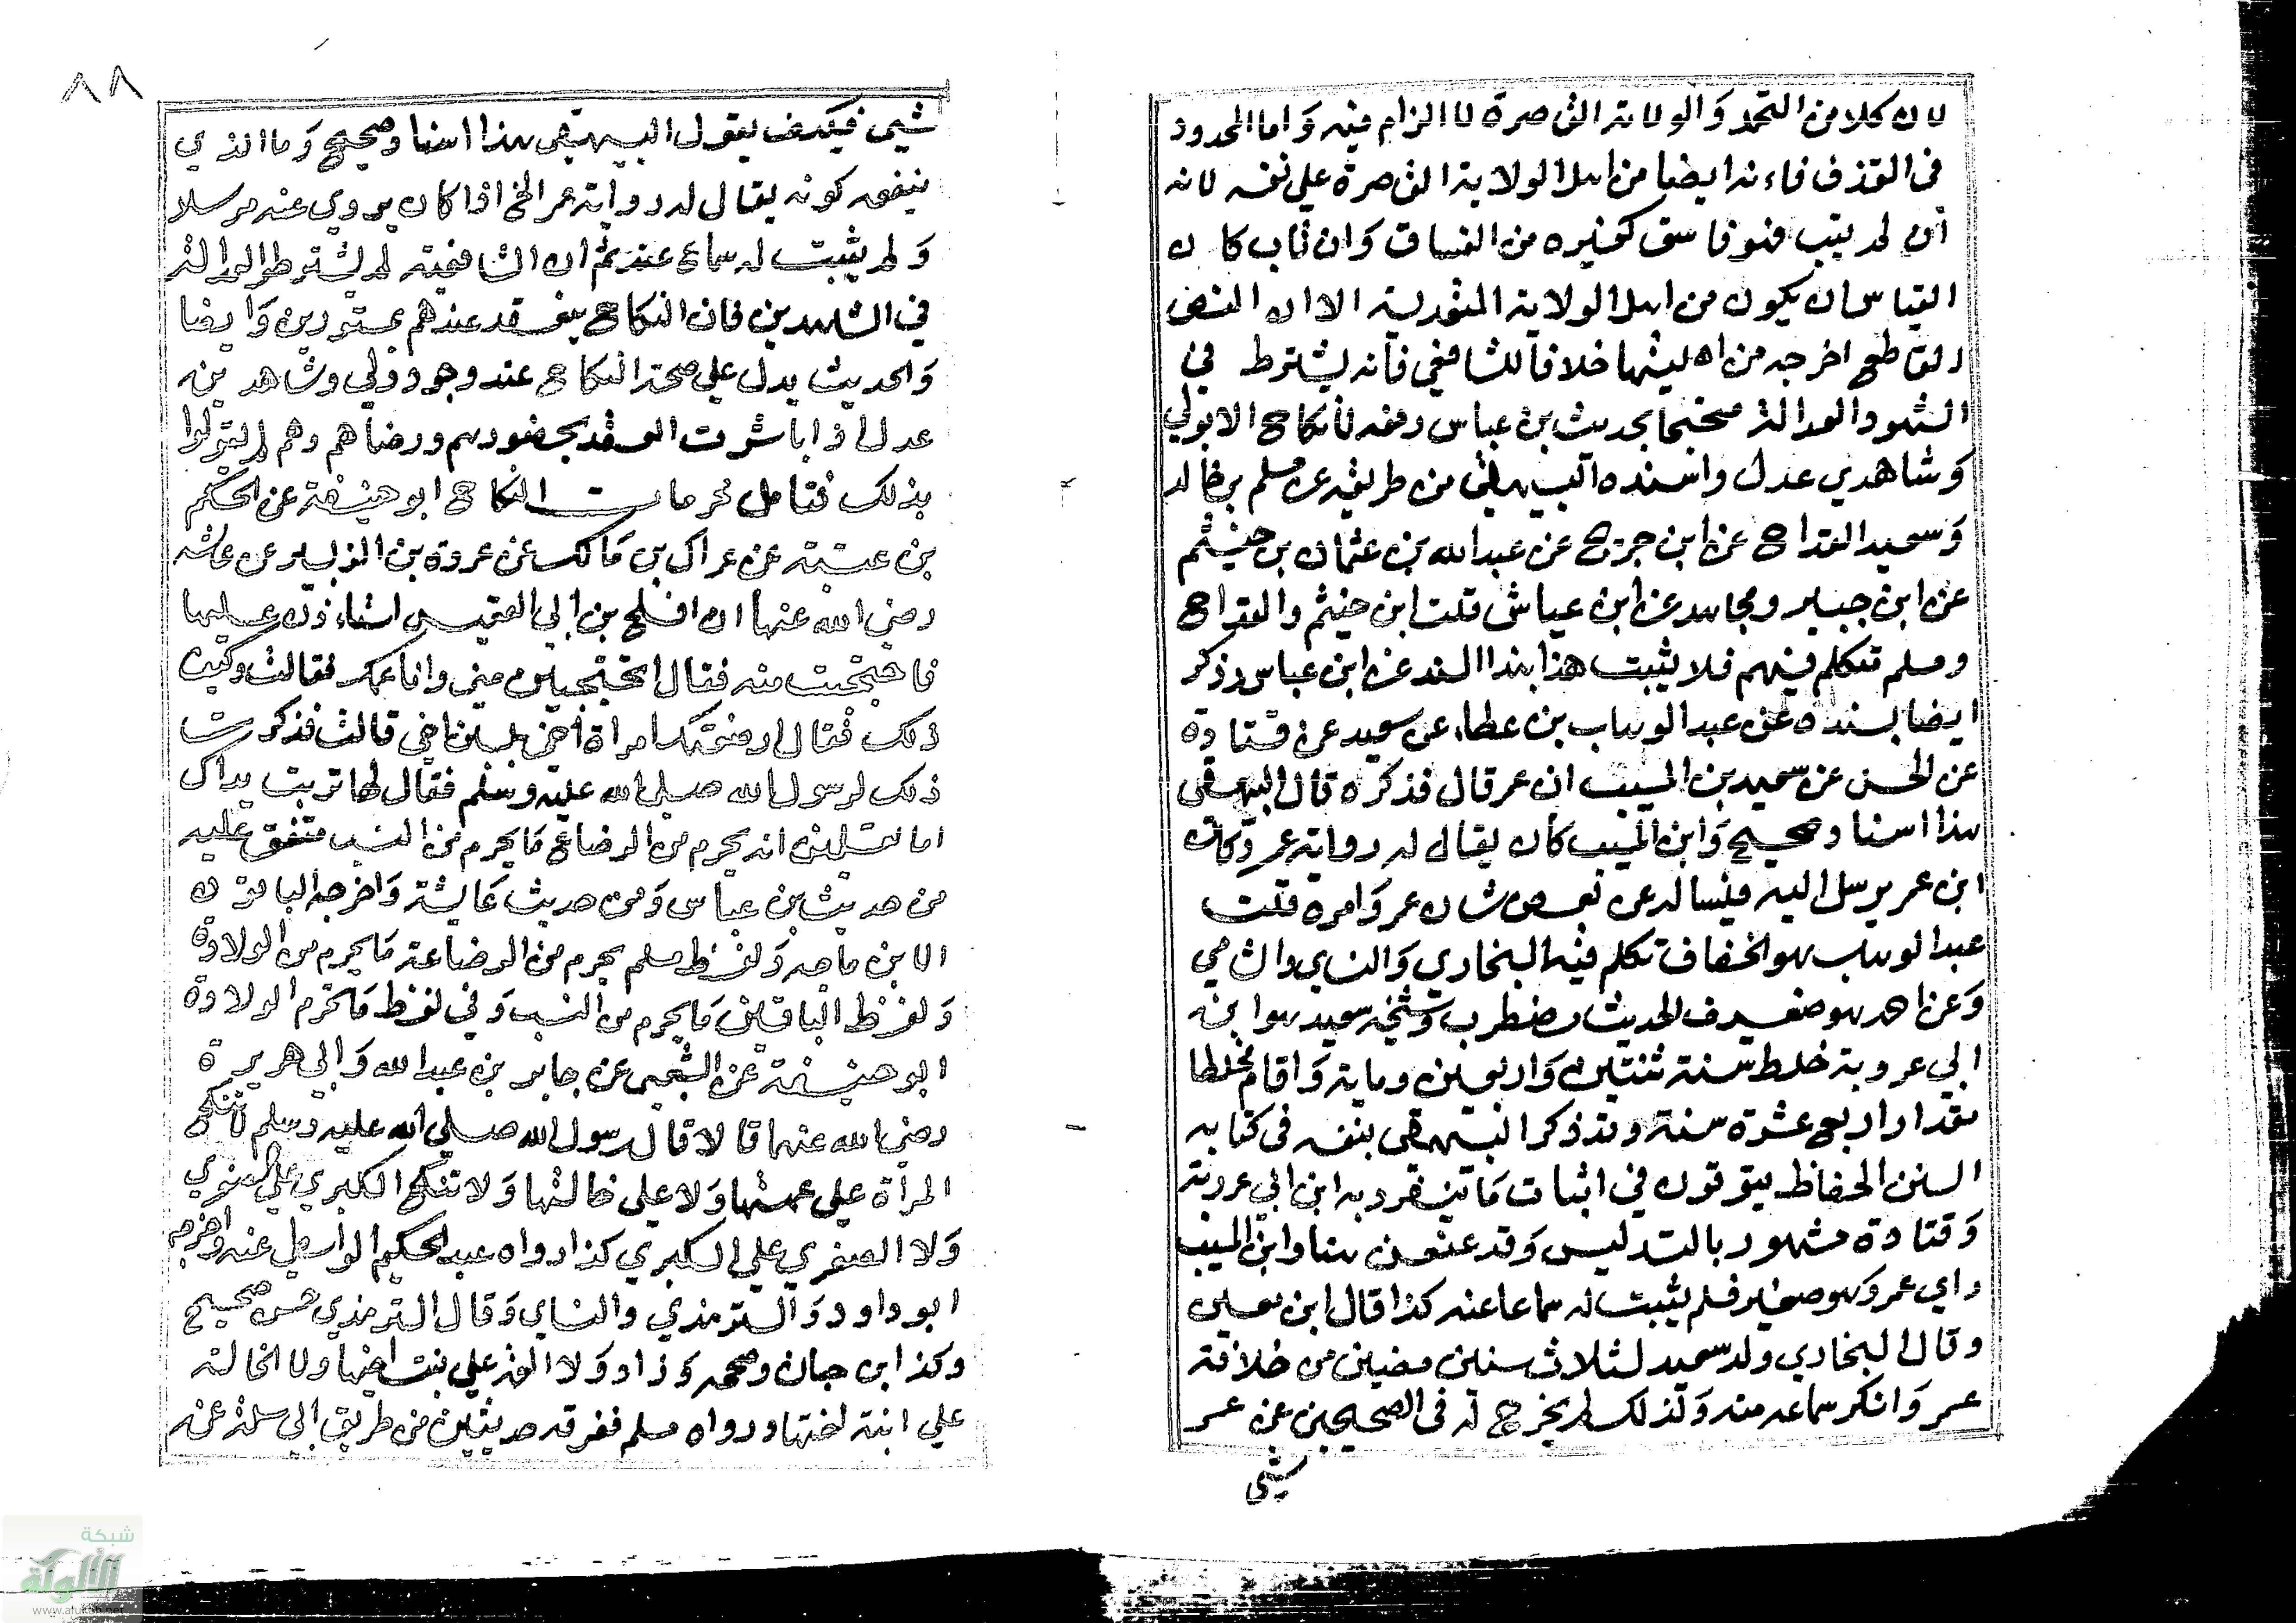 لان كلا من التحمل والولاية القاصرة لا الزام فيه وَاما المحدود
في القذف فاءنه ايضا من اهل الولاية القاصرة علي نفسه لانه
ان لم يتب فهو فاسق كغيره من الفساق وَان تاب كان
القياس ان يكون من اهل الولاية المتعدية الا ان النص
القاطع اخرجه من اهليتها خلافا للشافعي فانه يشترط في
الشهود العدالة محتجا بحديث بن عباس رفعه لا نكاح الا بولي
وَشاهدي عدل واسنده البيهقي من طريقه عن مسلم بن خالد
وَسعيد القداح عن ابن جريج عن عبد الله بن عثمان بن خيثم
عن ابن جبير ومجاهد عن ابن عباس قلت ابن خيثم والقداح
ومسلم تكلم فيهم فلا يثبت هذا بهذا السند عن ابن عباس وذكر
ايضا بسنده عن عبد الوهاب بن عطاء عن سعيد عن قتادة
عن الحسن عن سعيد بن المسيب ان عمر قال فذكره قال البيهقي
هذا اسناد صحيح وَابن المسيب كان يقال له رواية عمر وَكان
ابن عمر يرسل اليه فيساله عن بعض شان عمر وَامره قلت
عبد الوهاب هو الخفاف تكلم فيه البخاري وَالنساي والساجي
وَعن احمد هو ضعيف الحديث مضطرب وشيخه سعيد هو ابن
ابي عروبة خلط سنة ثنتين وَاربعين وماية وَاقام مخلطا
مقدار اربع عشرة سنة وقد ذكر البيهقي بنفسه في كتابه
السنن الحفاظ يتوقون في اثبات مَا ينفرد به ابن ابي عروبة
وَقتادة مشهور بالتدليس وَقد عنعن هنا وابن المسيب
راي عمر وَهو صغير فلم يثبت له سماعا عنه كذا قال ابن معين
وقال البخاري ولد سعيد لثلاث سنين مضين من خلافة
عمر وَانكر سماعه منه وَلذلك لم يخرج له في الصحيحين عن عمر
شيئ
٨٨
شيئ فكيف يقول البيهقي هذا اسناد صحيح وَما الذي
ينفعه كونه يقال له رواية عمر الخ اذا كان يروي عنه مرسلا
وَلم يثبت له سماع عنه ثم ان الشافعية لم يشترطوا العدالة
في الشاهدين فان النكاح ينعقد عندهم بمستورين وَايضا
وَالحديث يدل علي صحة النكاح عند وجود ولي وشاهدين
عدل اذا باشرت العقد بحضورهم ورضاهم وهم لم يقولوا
بذلك فتامل محرمات النكاح ابو حنيفة عن الحكم
بن عتيبة عن عراك بن مَالك عن عروة بن الزبير عن عائشة
رضي الله عنها ان افلح بن ابي القعيس استاءذن عليها
فاحتجبت منه فقال اتحتجبين مني وانا عمك فقالت وكيف
ذلك فقال ارضعتك امراة اخي بلبن اخي قالت فذكرت
ذلك لرسول الله صلي الله عليه وسلم فقال لها تربت يداك
اما تعلمين انه يحرم من الرضاع مَا يحرم من النسب متفق عليه
من حديث بن عباس وَمن حديث عَايشة وَاخرجه الباقون
الا ابن ماجه وَلفظ مسلم يحرم من الرضاعة مَا يحرم من الولادة
وَلفظ الباقين مَا يحرم من النسب وَفي لفظ مَا تحرم الولادة
ابو حنيفة عن الشعبي عن جابر بن عبد الله وَابي هريرة
رضي الله عنهما قالا قال رسول الله صلي الله عليه وسلم لا تنكح
المرأة علي عمتها وَلا علي خالتها وَلا تنكح الكبري علي الصغري
وَلا الصغري علي الكبري كذا رواه عبد الحكيم الواسطي عنه وَاخرجه
ابو داود وَالترمذي والنساي وَقال الترمذي حسن صحيح
وكذا ابن حبان وصححه وَزاد وَلا العمة علي بنت اخيها ولا الخالة
علي ابنة اختها ورواه مسلم ففرقه حديثين من طريق ابي سلمة عنه
شبكة
الألوكة
www.alukah.net